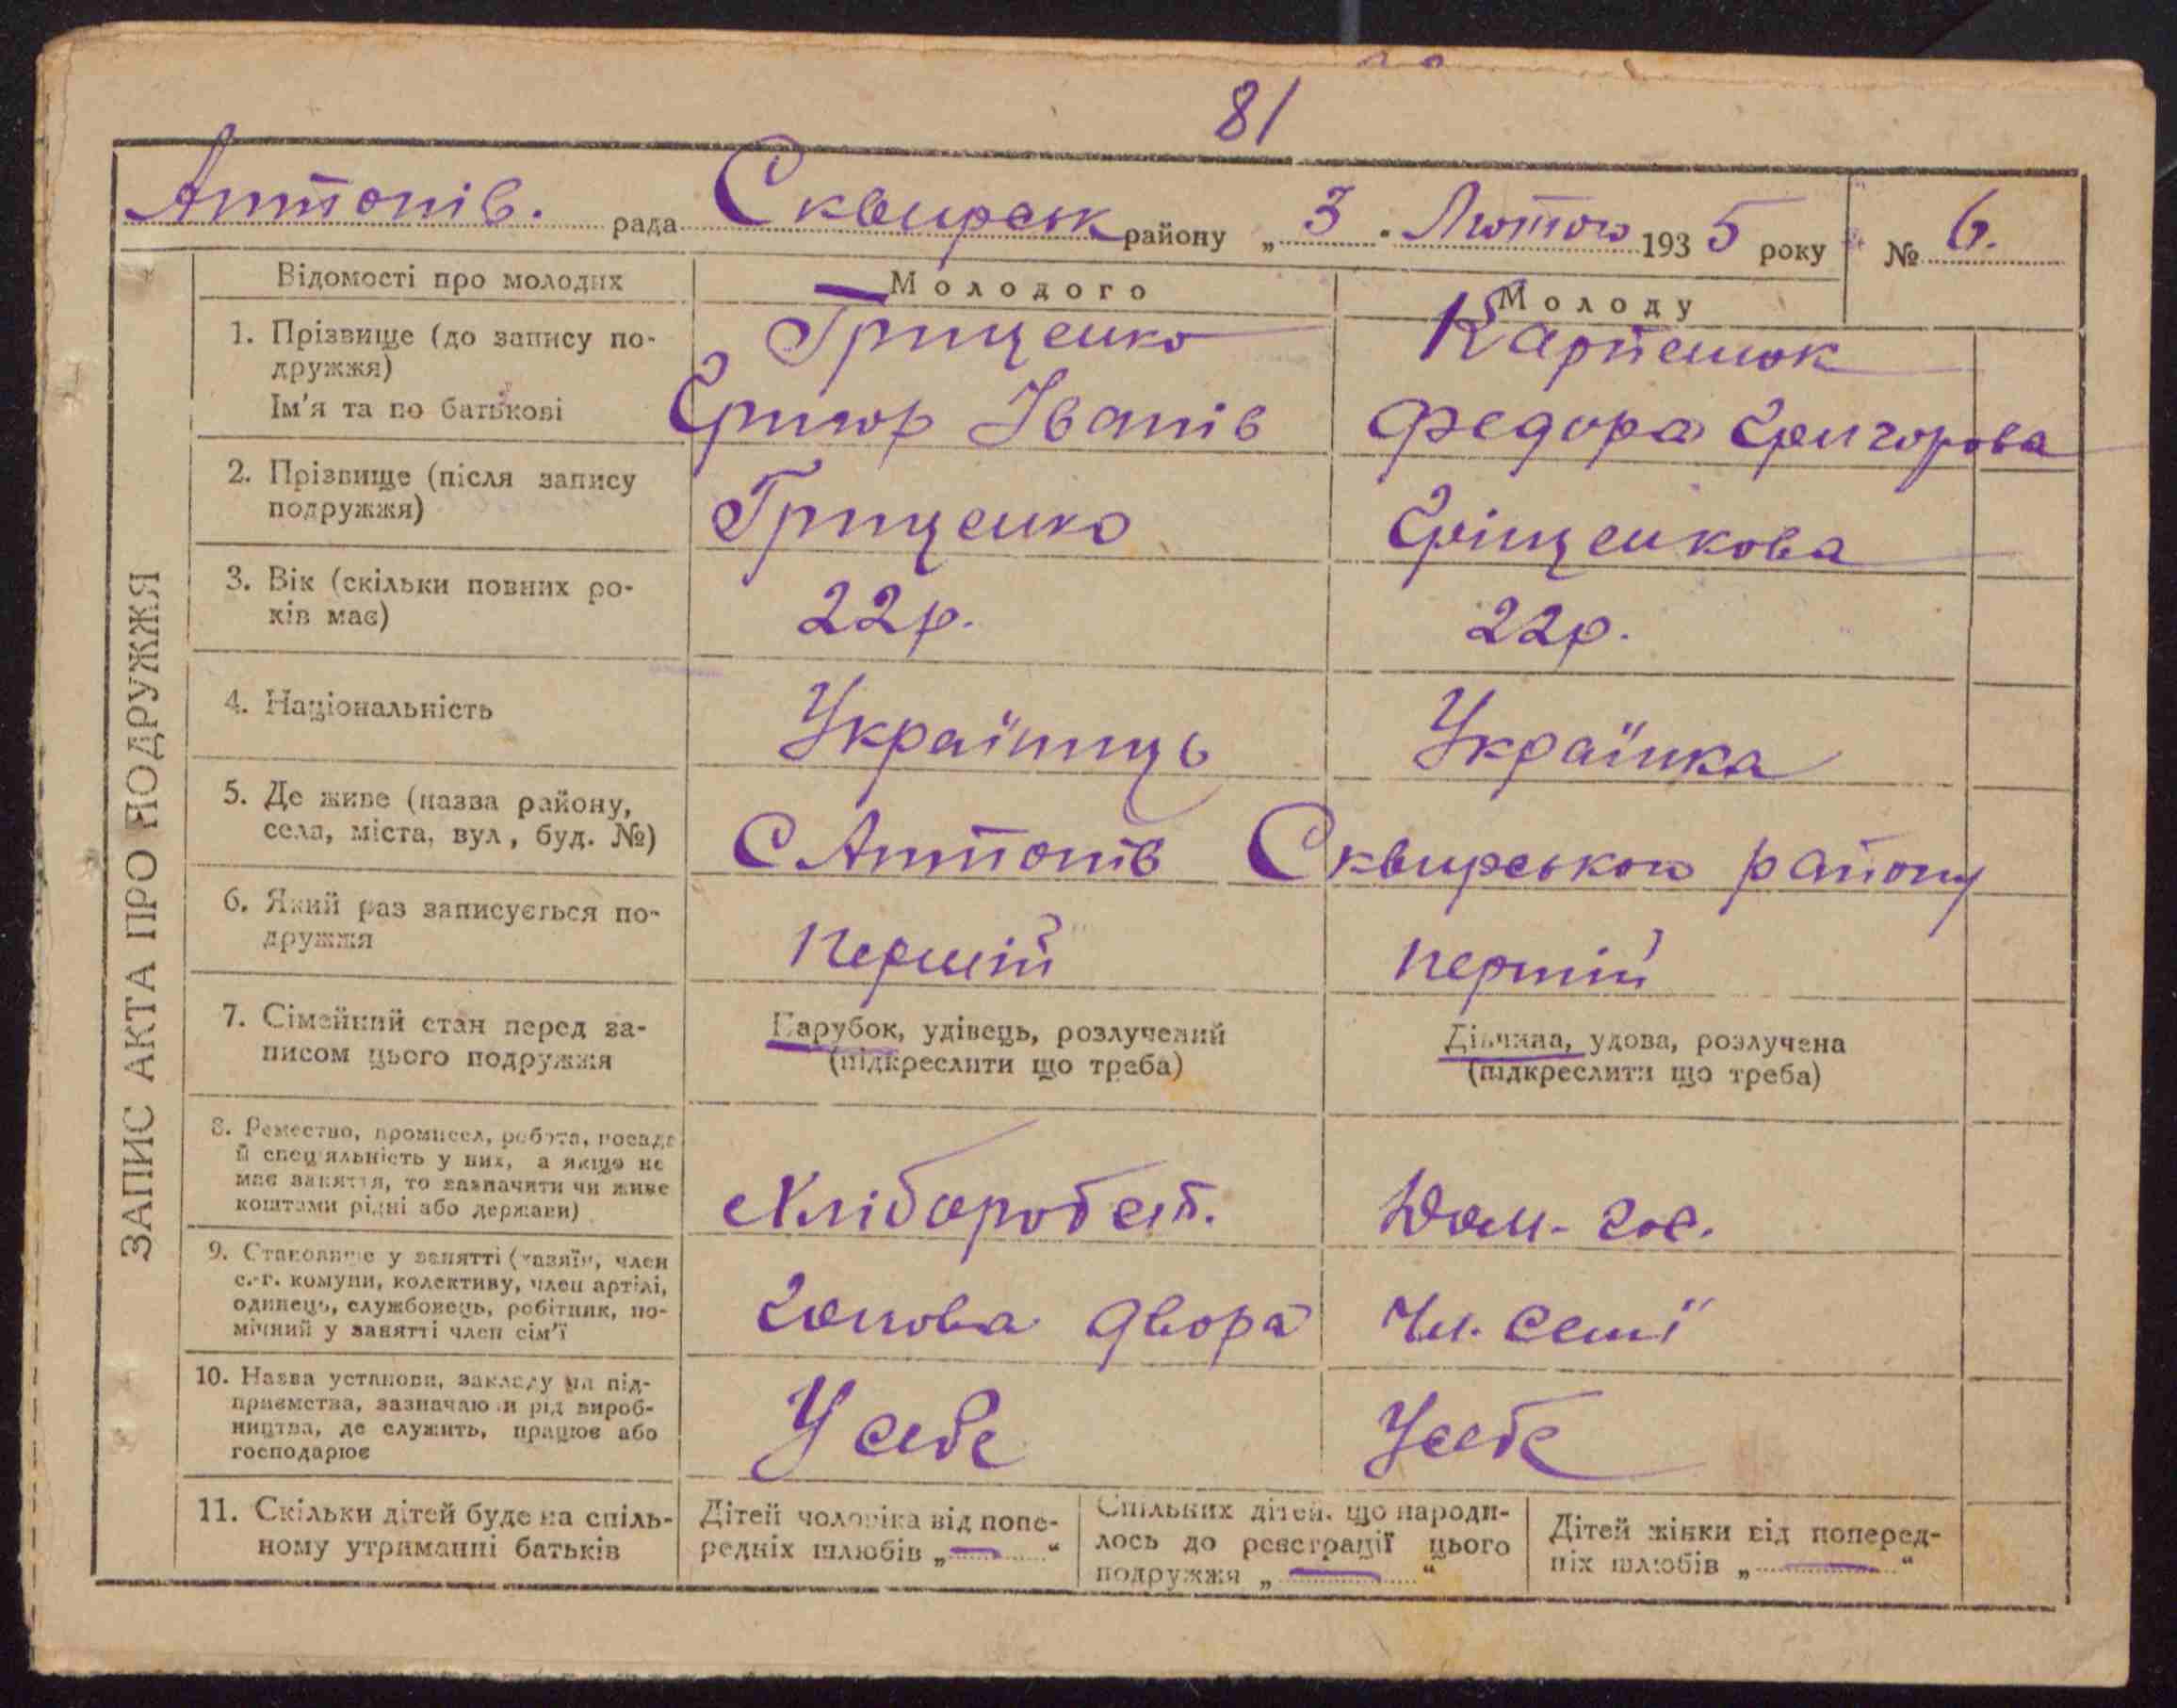 81
Антонів. рада Сквирськ району „ 3 " Лютого 1935 року № 6.
Відомості про молодих
Молодого
Молоду
1. Прізвище (до запису по-
дружжя)
Ім'я та по батькові
Грищенко
Григор Іванів
Карпенюк
Федора Григорова
2. Прізвище (після запису
подружжя)
Грищенко
Гріщенкова
3. Вік (скільки повних ро-
ків має)
22р.
22р.
4. Національність
Україниць
Українка
5. Де живе (назва району,
села, міста, вул, буд. №)
С Антонів Сквирського району
6. Який раз записується по-
дружжя
першій
першій
7. Сімейний стан перед за-
писом цього подружжя
Парубок, удівець, розлучений
(підкреслити що треба)
Дівчина, удова, розлучена
(підкреслити що треба)
8. Ремество, промисел, робота, посада
й спец'яльність у них, а якщо не
має заняття, то зазначити чи живе
коштами рідні або держави)
Хліборобст.
Дом. гос.
9. Становище у занятті (хазяїн, член
с.-г. комуни, колективу, член артілі,
одинець, службовець, робітник, по-
мічний у занятті член сім'ї
Голова двора
Чл. семї
10. Назва установи, закладу чи під-
приємства, зазначаючи рід вироб-
ництва, де служить, працює або
господарює
У себе
У себе
11. Скільки дітей буде на спіль-
ному утриманні батьків
Дітей чоловіка від попе-
редніх шлюбів „ — "
Спільних дітей, що народи-
лось до реєстрації цього
подружжя „ — "
Дітей жінки від поперед-
ніх шлюбів „ — "
ЗАПИС АКТА ПРО ПОДРУЖЖЯ